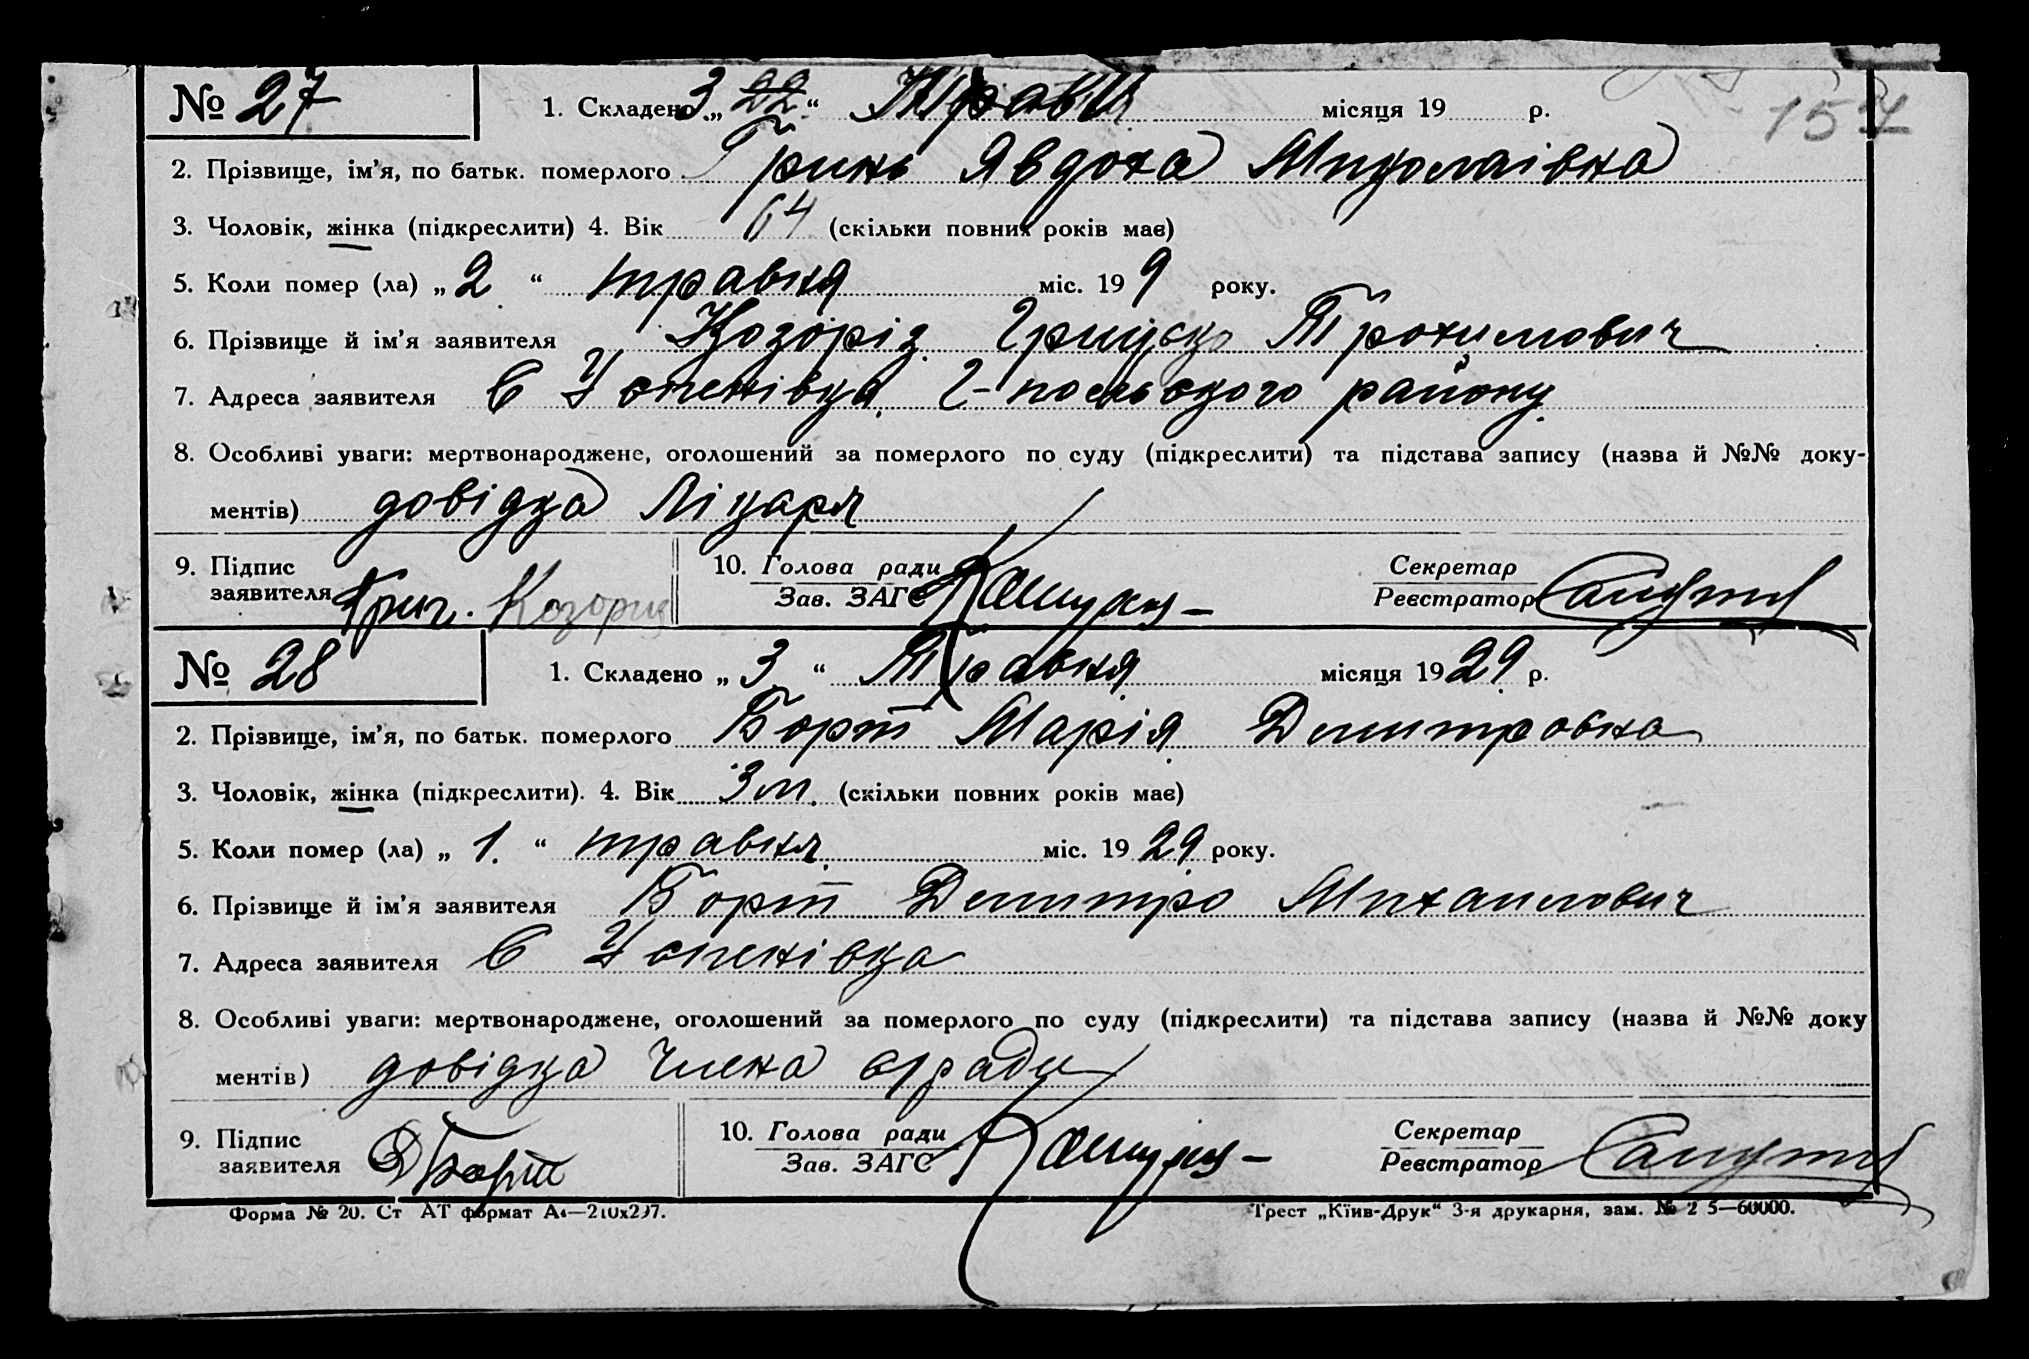 № 27 1. Складено 3 „22“ Травня місяця 19 р. 157
2. Прізвище, ім’я, по батьк. померлого Гринь Явдоха Миколаівна
3. Чоловік, жінка (підкреслити) 4. Вік 64 (скільки повних років має)
5. Коли помер (ла) „2“ травня міс. 19 9 року.
6. Прізвище й ім’я заявителя Козоріз Грицько Трохимович
7. Адреса заявителя С Успенівка Г-польського району
8. Особливі уваги: мертвонароджене, оголошений за померлого по суду (підкреслити) та підстава запису (назва й №№ доку-
ментів) довідка Лікаря
9. Підпис заявителя Григ. Козориз 10. Голова ради Зав. ЗАГС Секретар Реєстратор
№ 28 1. Складено „3“ Травня місяця 1929 р.
2. Прізвище, ім’я, по батьк. померлого Борт Марія Дмитровна
3. Чоловік, жінка (підкреслити). 4. Вік 3 м. (скільки повних років має)
5. Коли помер (ла) „1.“ травня міс. 1929 року.
6. Прізвище й ім’я заявителя Борт Дмитро Михаилович
7. Адреса заявителя С Успенівка
8. Особливі уваги: мертвонароджене, оголошений за померлого по суду (підкреслити) та підстава запису (назва й №№ доку
ментів) довідка Члена с/ради
9. Підпис заявителя Д Борт 10. Голова ради Зав. ЗАГС Секретар Реєстратор
Форма № 20. Ст АТ формат А4—210x297. Трест „Київ-Друк“ 3-я друкарня, зам. № 2 5—60000.